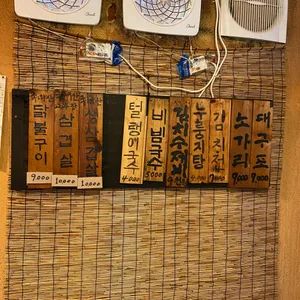 닭불구이
9,000
삼겹살
10,000
생삼겹살
10,000
털랭이국수
4,000
비빔국수
5,000
김치수제비
누룽지탕
4,000
김치전
7,000
노가리
9,000
대구포
9,000